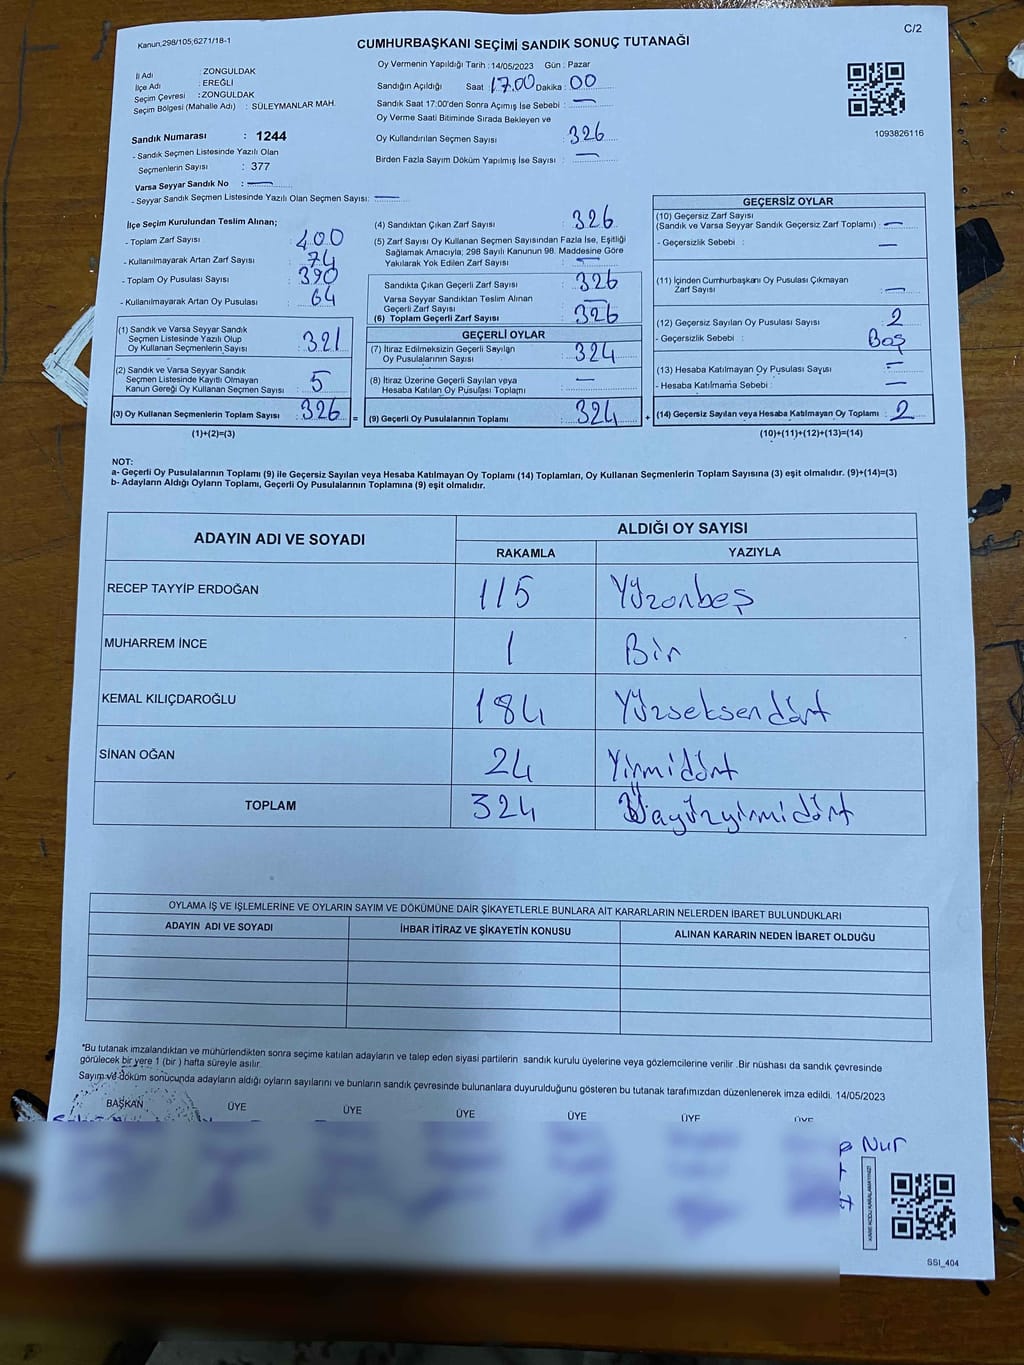 Kanun;298/105;6271/18-1
C/2
CUMHURBAŞKANI SEÇİMİ SANDIK SONUÇ TUTANAĞI
İl Adı : ZONGULDAK
İlçe Adı : EREĞLİ
Seçim Çevresi : ZONGULDAK
Seçim Bölgesi (Mahalle Adı) : SÜLEYMANLAR MAH.
Sandık Numarası : 1244
- Sandık Seçmen Listesinde Yazılı Olan
Seçmenlerin Sayısı : 377
Varsa Seyyar Sandık No : —
- Seyyar Sandık Seçmen Listesinde Yazılı Olan Seçmen Sayısı: —
Oy Vermenin Yapıldığı Tarih : 14/05/2023 Gün : Pazar
Sandığın Açıldığı Saat : 17.00 Dakika : 00
Sandık Saat 17:00'den Sonra Açımış İse Sebebi : —
Oy Verme Saati Bitiminde Sırada Bekleyen ve
Oy Kullandırılan Seçmen Sayısı : 326
Birden Fazla Sayım Döküm Yapılmış İse Sayısı : —
1093826116
İlçe Seçim Kurulundan Teslim Alınan;
- Toplam Zarf Sayısı : 400
- Kullanılmayarak Artan Zarf Sayısı : 74
- Toplam Oy Pusulası Sayısı : 390
- Kullanılmayarak Artan Oy Pusulası : 64
(1) Sandık ve Varsa Seyyar Sandık
Seçmen Listesinde Yazılı Olup
Oy Kullanan Seçmenlerin Sayısı : 321
(2) Sandık ve Varsa Seyyar Sandık
Seçmen Listesinde Kayıtlı Olmayan
Kanun Gereği Oy Kullanan Seçmen Sayısı : 5
(3) Oy Kullanan Seçmenlerin Toplam Sayısı : 326 =
(1)+(2)=(3)
(4) Sandıktan Çıkan Zarf Sayısı : 326
(5) Zarf Sayısı Oy Kullanan Seçmen Sayısından Fazla İse, Eşitliği
Sağlamak Amacıyla; 298 Sayılı Kanunun 98. Maddesine Göre
Yakılarak Yok Edilen Zarf Sayısı : —
Sandıkta Çıkan Geçerli Zarf Sayısı : 326
Varsa Seyyar Sandıktan Teslim Alınan
Geçerli Zarf Sayısı : —
(6) Toplam Geçerli Zarf Sayısı : 326
GEÇERLİ OYLAR
(7) İtiraz Edilmeksizin Geçerli Sayılan
Oy Pusulalarının Sayısı : 324
(8) İtiraz Üzerine Geçerli Sayılan veya
Hesaba Katılan Oy Pusulası Toplamı : —
(9) Geçerli Oy Pusulalarının Toplamı : 324 +
GEÇERSİZ OYLAR
(10) Geçersiz Zarf Sayısı
(Sandık ve Varsa Seyyar Sandık Geçersiz Zarf Toplamı) : —
- Geçersizlik Sebebi : —
(11) İçinden Cumhurbaşkanı Oy Pusulası Çıkmayan
Zarf Sayısı : —
(12) Geçersiz Sayılan Oy Pusulası Sayısı : 2
- Geçersizlik Sebebi : Boş
(13) Hesaba Katılmayan Oy Pusulası Sayısı : —
- Hesaba Katılmama Sebebi : —
(14) Geçersiz Sayılan veya Hesaba Katılmayan Oy Toplamı : 2
(10)+(11)+(12)+(13)=(14)
NOT:
a- Geçerli Oy Pusulalarının Toplamı (9) ile Geçersiz Sayılan veya Hesaba Katılmayan Oy Toplamı (14) Toplamları, Oy Kullanan Seçmenlerin Toplam Sayısına (3) eşit olmalıdır. (9)+(14)=(3)
b- Adayların Aldığı Oyların Toplamı, Geçerli Oy Pusulalarının Toplamına (9) eşit olmalıdır.
ADAYIN ADI VE SOYADI ALDIĞI OY SAYISI
RAKAMLA YAZIYLA
RECEP TAYYİP ERDOĞAN 115 Yüzonbeş
MUHARREM İNCE 1 Bir
KEMAL KILIÇDAROĞLU 184 Yüzseksendört
SİNAN OĞAN 24 Yirmidört
TOPLAM 324 Üçyüzyirmidört
OYLAMA İŞ VE İŞLEMLERİNE VE OYLARIN SAYIM VE DÖKÜMÜNE DAİR ŞİKAYETLERLE BUNLARA AİT KARARLARIN NELERDEN İBARET BULUNDUKLARI
ADAYIN ADI VE SOYADI İHBAR İTİRAZ VE ŞİKAYETİN KONUSU ALINAN KARARIN NEDEN İBARET OLDUĞU
*Bu tutanak imzalandıktan ve mühürlendikten sonra seçime katılan adayların ve talep eden siyasi partilerin sandık kurulu üyelerine veya gözlemcilerine verilir .Bir nüshası da sandık çevresinde
görülecek bir yere 1 (bir ) hafta süreyle asılır.
Sayım ve döküm sonucunda adayların aldığı oyların sayılarını ve bunların sandık çevresinde bulunanlara duyurulduğunu gösteren bu tutanak tarafımızdan düzenlenerek imza edildi. 14/05/2023
BAŞKAN ÜYE ÜYE ÜYE ÜYE ÜYE ÜYE
Nur
KARE KODU KARALAMAYINIZ!
SSI_404